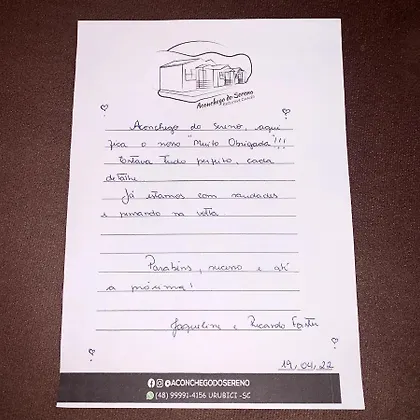 Aconchego do Sereno
Aconchego do Sereno, aqui
fica o nosso "Muito Obrigada"!!!
Estava tudo perfeito, cada
detalhe
Já estamos com saudades
e pensando na volta
Parabéns, sucesso e até
a próxima!
Jaqueline e Ricardo
19,04,22
@ACONCHEGODOSERENO
(48) 99991-4156 URUBICI -SC